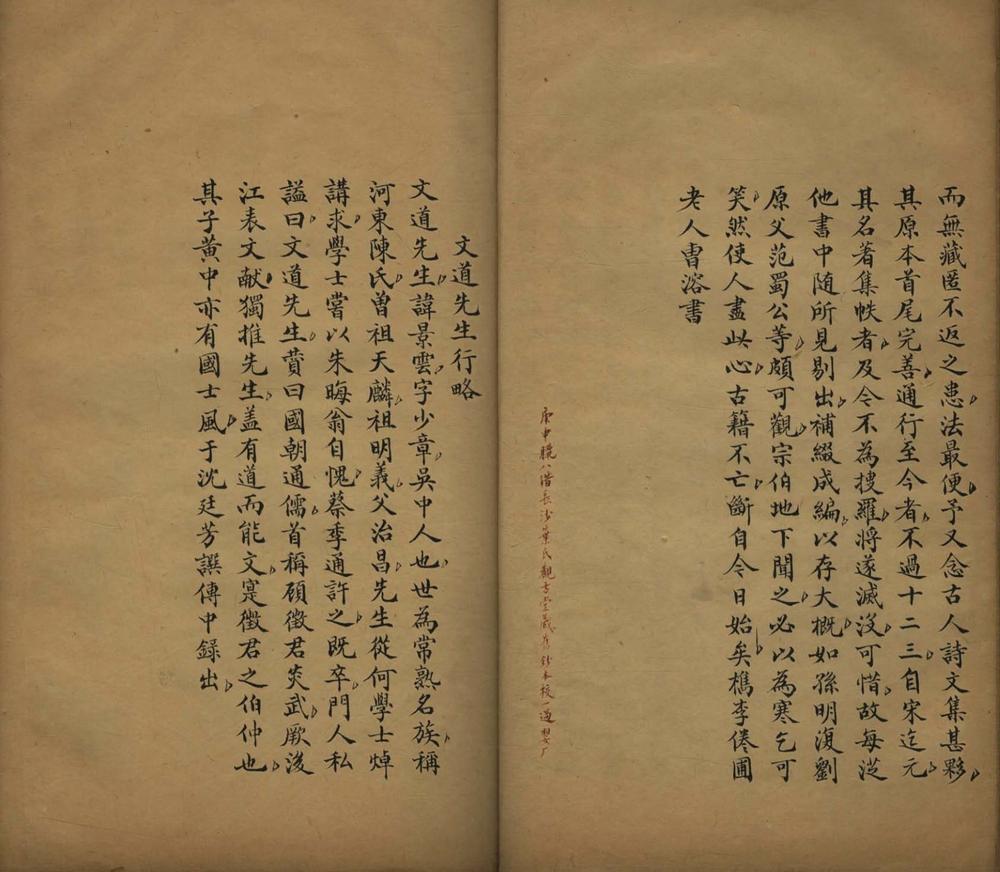 而無藏匿不返之患法最便予又念古人詩文集甚夥
其原本首尾完善通行至今者不過十二三自宋迄元
其名著集帙者及今不為搜羅將遂滅沒可惜故每從
他書中随所見剔出補綴成編以存大概如孫明復劉
原父范蜀公等頗可觀宗伯地下聞之必以為寒乞可
笑然使人盡此心古籍不亡斷自今日始矣檇李倦圃
老人曺溶書
庚申臘八借長沙葉氏觀古堂藏舊鈔本校一過
文道先生行略
文道先生諱景雲字少章吳中人也世為常熟名族稱
河東陳氏曽祖天麟祖明義父治昌先生從何學士焯
講求學士嘗以朱晦翁自愧蔡季通許之既卒門人私
謚曰文道先生賛曰國朝通儒首稱顾徵君炎武厥後
江表文献獨推先生盖有道而能文寔徵君之伯仲也
其子黄中亦有國士風于沈廷芳譔傳中録出